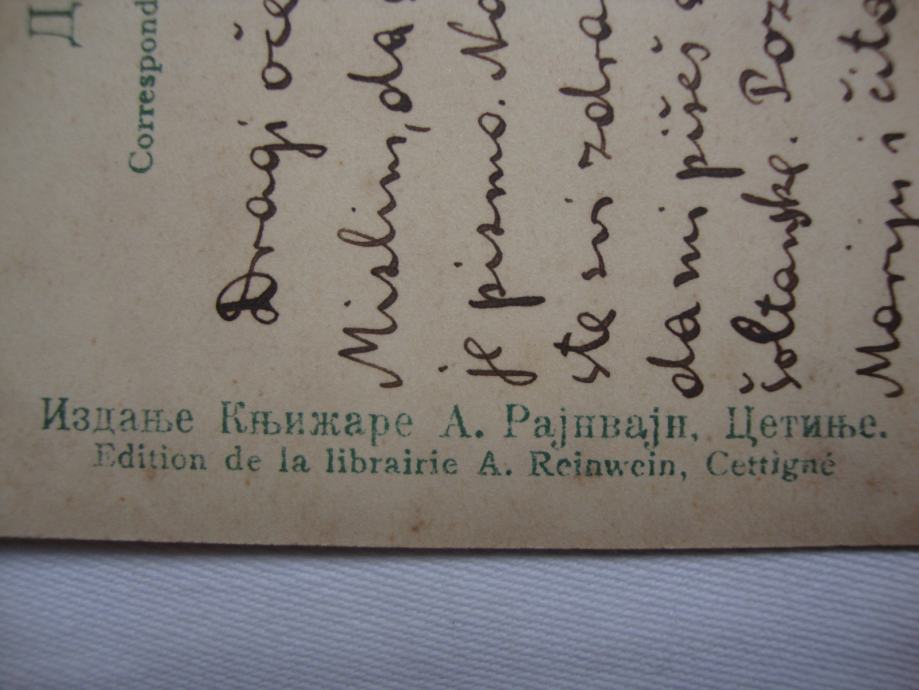 Д
Correspond
Dragi oče
Mislim, da
je pismo. No
ste svi zdra
da mi pišeš
šoltanske. Poz
Mariju i čita
Издање Књижаре А. Рајнвајн, Цетиње.
Edition de la librairie A. Reinwein, Cettigné